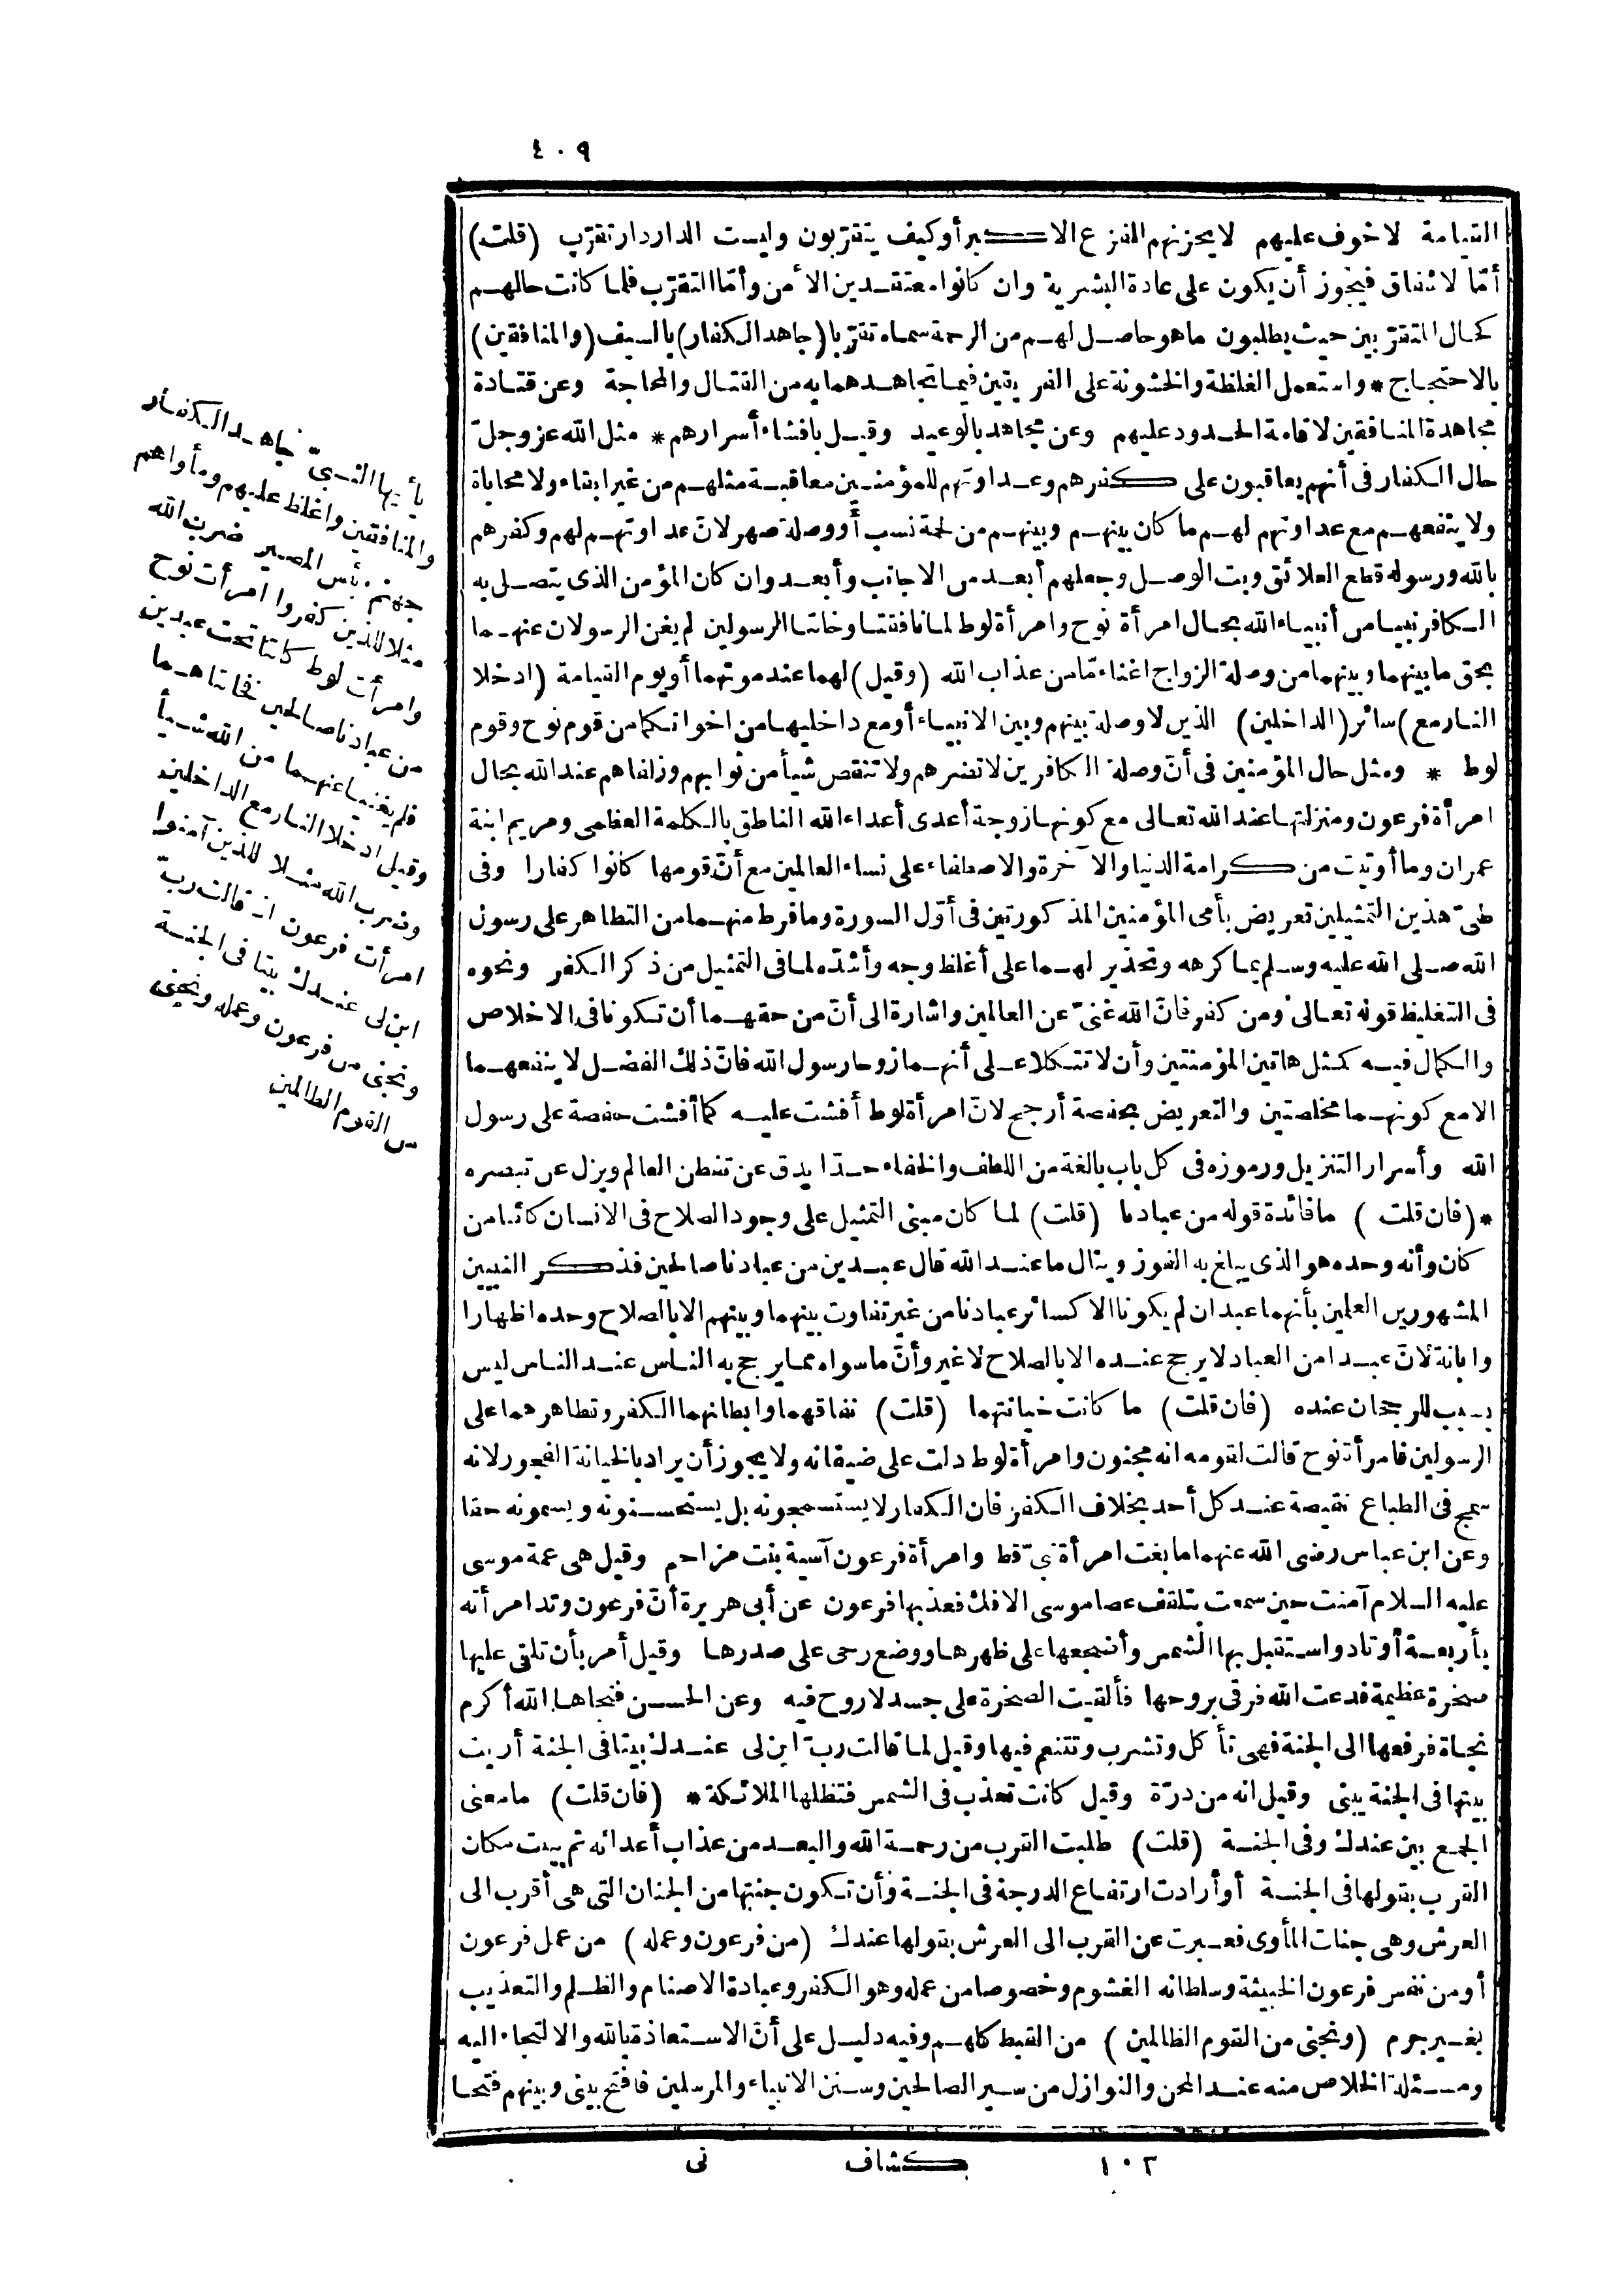 ٤٠٩
القيامة لا خوف عليهم لا يحزنهم الفزع الاكبر أو كيف يتقرّبون وليست الدار دار تقرّب (قلت)
أمّا لا شفاق فيجوز أن يكون على عادة البشرية وان كانوا معتقدين الأمن وأمّا التقرّب فلما كانت حالهم
كحال المتقرّبين حيث يطلبون ما هو حاصل لهم من الرحمة سماه تقرّبا (جاهد الكفار) بالسيف (والمنافقين)
بالاحتجاج * واستعمل الغلظة والخشونة على الفريقين فيما تجاهدهما به من القتال والمحاجة وعن قتادة
مجاهدة المنافقين لاقامة الحدود عليهم وعن مجاهد بالوعيد وقيل بافشاء أسرارهم * مثل الله عز وجلّ
حال الكفار فى أنهم يعاقبون على كفرهم وعداوتهم للمؤمنين معاقبة مثلهم من غير ابقاء ولا محاباة
ولا ينفعهم مع عداوتهم لهم ما كان بينهم وبينهم من لحمة نسب أو وصلة صهر لانّ عداوتهم لهم وكفرهم
بالله ورسوله قطع العلائق وبت الوصل وجعلهم أبعد من الاجانب وأبعد وان كان المؤمن الذى يتصل به
الكافر نبيا من أنبياء الله بحال امرأة نوح وامرأة لوط لما نافقتا وخانتا الرسولين لم يغن الرسولان عنهما
بحق ما بينهما وبينهما من وصلة الزواج اغناء مّا من عذاب الله (وقيل) لهما عند موتهما أو يوم القيامة (ادخلا
النار مع) سائر (الداخلين) الذين لا وصلة بينهم وبين الانبياء أو مع داخليها من اخوانكما من قوم نوح وقوم
لوط * ومثل حال المؤمنين فى أنّ وصلة الكافرين لا تضرهم ولا تنقص شيأ من ثوابهم وزلفاهم عند الله بحال
امرأة فرعون ومنزلتها عند الله تعالى مع كونها زوجة أعدى أعداء الله الناطق بالكلمة العظمى ومريم ابنة
عمران وما أوتيت من كرامة الدنيا والآخرة والاصطفاء على نساء العالمين مع أنّ قومها كانوا كفارا وفى
طىّ هذين التمثيلين تعريض بأمى المؤمنين المذكورتين فى أوّل السورة وما فرط منهما من التظاهر على رسول
الله صلى الله عليه وسلم بما كرهه وتحذير لهما على أغلظ وجه وأشدّه لما فى التمثيل من ذكر الكفر ونحوه
فى التغليظ قوله تعالى ومن كفر فانّ الله غنىّ عن العالمين واشارة الى أنّ من حقهما أن تكونا فى الاخلاص
والكمال فيه كمثل هاتين المؤمنتين وأن لا تتكلا على أنهما زوجا رسول الله فانّ ذلك الفضل لا ينفعهما
الا مع كونهما مخلصتين والتعريض بحفصة أرجح لانّ امرأة لوط أفشت عليه كما أفشت حفصة على رسول
الله وأسرار التنزيل ورموزه فى كل باب بالغة من اللطف والخفاء حدّا يدق عن تفطن العالم ويزل عن تبصره
* (فان قلت) ما فائدة قوله من عبادنا (قلت) لما كان مبنى التمثيل على وجود الصلاح فى الانسان كائنا من
كان وأنه وحده هو الذى يبلغ به الفوز وينال ما عند الله قال عبدين من عبادنا صالحين فذكر النبيين
المشهورين العلمين بأنهما عبدان لم يكونا الا كسائر عبادنا من غير تفاوت بينهما وبينهم الا بالصلاح وحده اظهارا
وابانة لانّ عبدا من العباد لا يرجح عنده الا بالصلاح لا غير وأنّ ما سواه مما يرجح به الناس عند الناس ليس
بسبب للرجحان عنده (فان قلت) ما كانت خيانتهما (قلت) نفاقهما وابطانهما الكفر وتظاهرهما على
الرسولين فامرأة نوح قالت لقومه انه مجنون وامرأة لوط دلت على ضيفانه ولا يجوز أن يراد بالخيانة الفجور لانه
سمج فى الطباع نقيصة عند كل أحد بخلاف الكفر فان الكفار لا يستسمجونه بل يستحسنونه ويسمونه حقا
وعن ابن عباس رضى الله عنهما ما بغت امرأة نبىّ قط وامرأة فرعون آسية بنت مزاحم وقيل هى عمة موسى
عليه السلام آمنت حين سمعت بتلقف عصا موسى الافك فعذبها فرعون عن أبى هريرة أنّ فرعون وتد امرأته
بأربعة أوتاد واستقبل بها الشمس وأضجعها على ظهرها ووضع رحى على صدرها وقيل أمر بأن تلقى عليها
صخرة عظيمة فدعت الله فرقى بروحها فألقيت الصخرة على جسد لا روح فيه وعن الحسن فنجاها الله أكرم
نجاة فرفعها الى الجنة فهى تأكل وتشرب وتتنعم فيها وقيل لما قالت ربّ ابن لى عندك بيتا فى الجنة أريت
بيتها فى الجنة يبنى وقيل انه من درّة وقيل كانت تعذب فى الشمس فتظلها الملائكة * (فان قلت) ما معنى
الجمع بين عندك وفى الجنة (قلت) طلبت القرب من رحمة الله والبعد من عذاب أعدائه ثم بينت مكان
القرب بقولها فى الجنة أو أرادت ارتفاع الدرجة فى الجنة وأن تكون جنتها من الجنان التى هى أقرب الى
العرش وهى جنات المأوى فعبرت عن القرب الى العرش بقولها عندك (من فرعون وعمله) من عمل فرعون
أو من نفس فرعون الخبيثة وسلطانه الغشوم وخصوصا من عمله وهو الكفر وعبادة الاصنام والظلم والتعذيب
بغير جرم (ونجنى من القوم الظالمين) من القبط كلهم وفيه دليل على أنّ الاستعاذة بالله والالتجاء اليه
ومسئلة الخلاص منه عند المحن والنوازل من سير الصالحين وسنن الانبياء والمرسلين فافتح بينى وبينهم فتحا
يأيها النبىّ جاهد الكفار
والمنافقين واغلظ عليهم ومأواهم
جهنم وبئس المصير ضرب الله
مثلا للذين كفروا امرأت نوح
وامرأت لوط كانتا تحت عبدين
من عبادنا صالحين فخانتاهما
فلم يغنيا عنهما من الله شيأ
وقيل ادخلا النار مع الداخلين
وضرب الله مثلا للذين آمنوا
امرأت فرعون اذ قالت ربّ
ابن لى عندك بيتا فى الجنة
ونجنى من فرعون وعمله ونجنى
من القوم الظالمين
١٠٢ كشاف نى